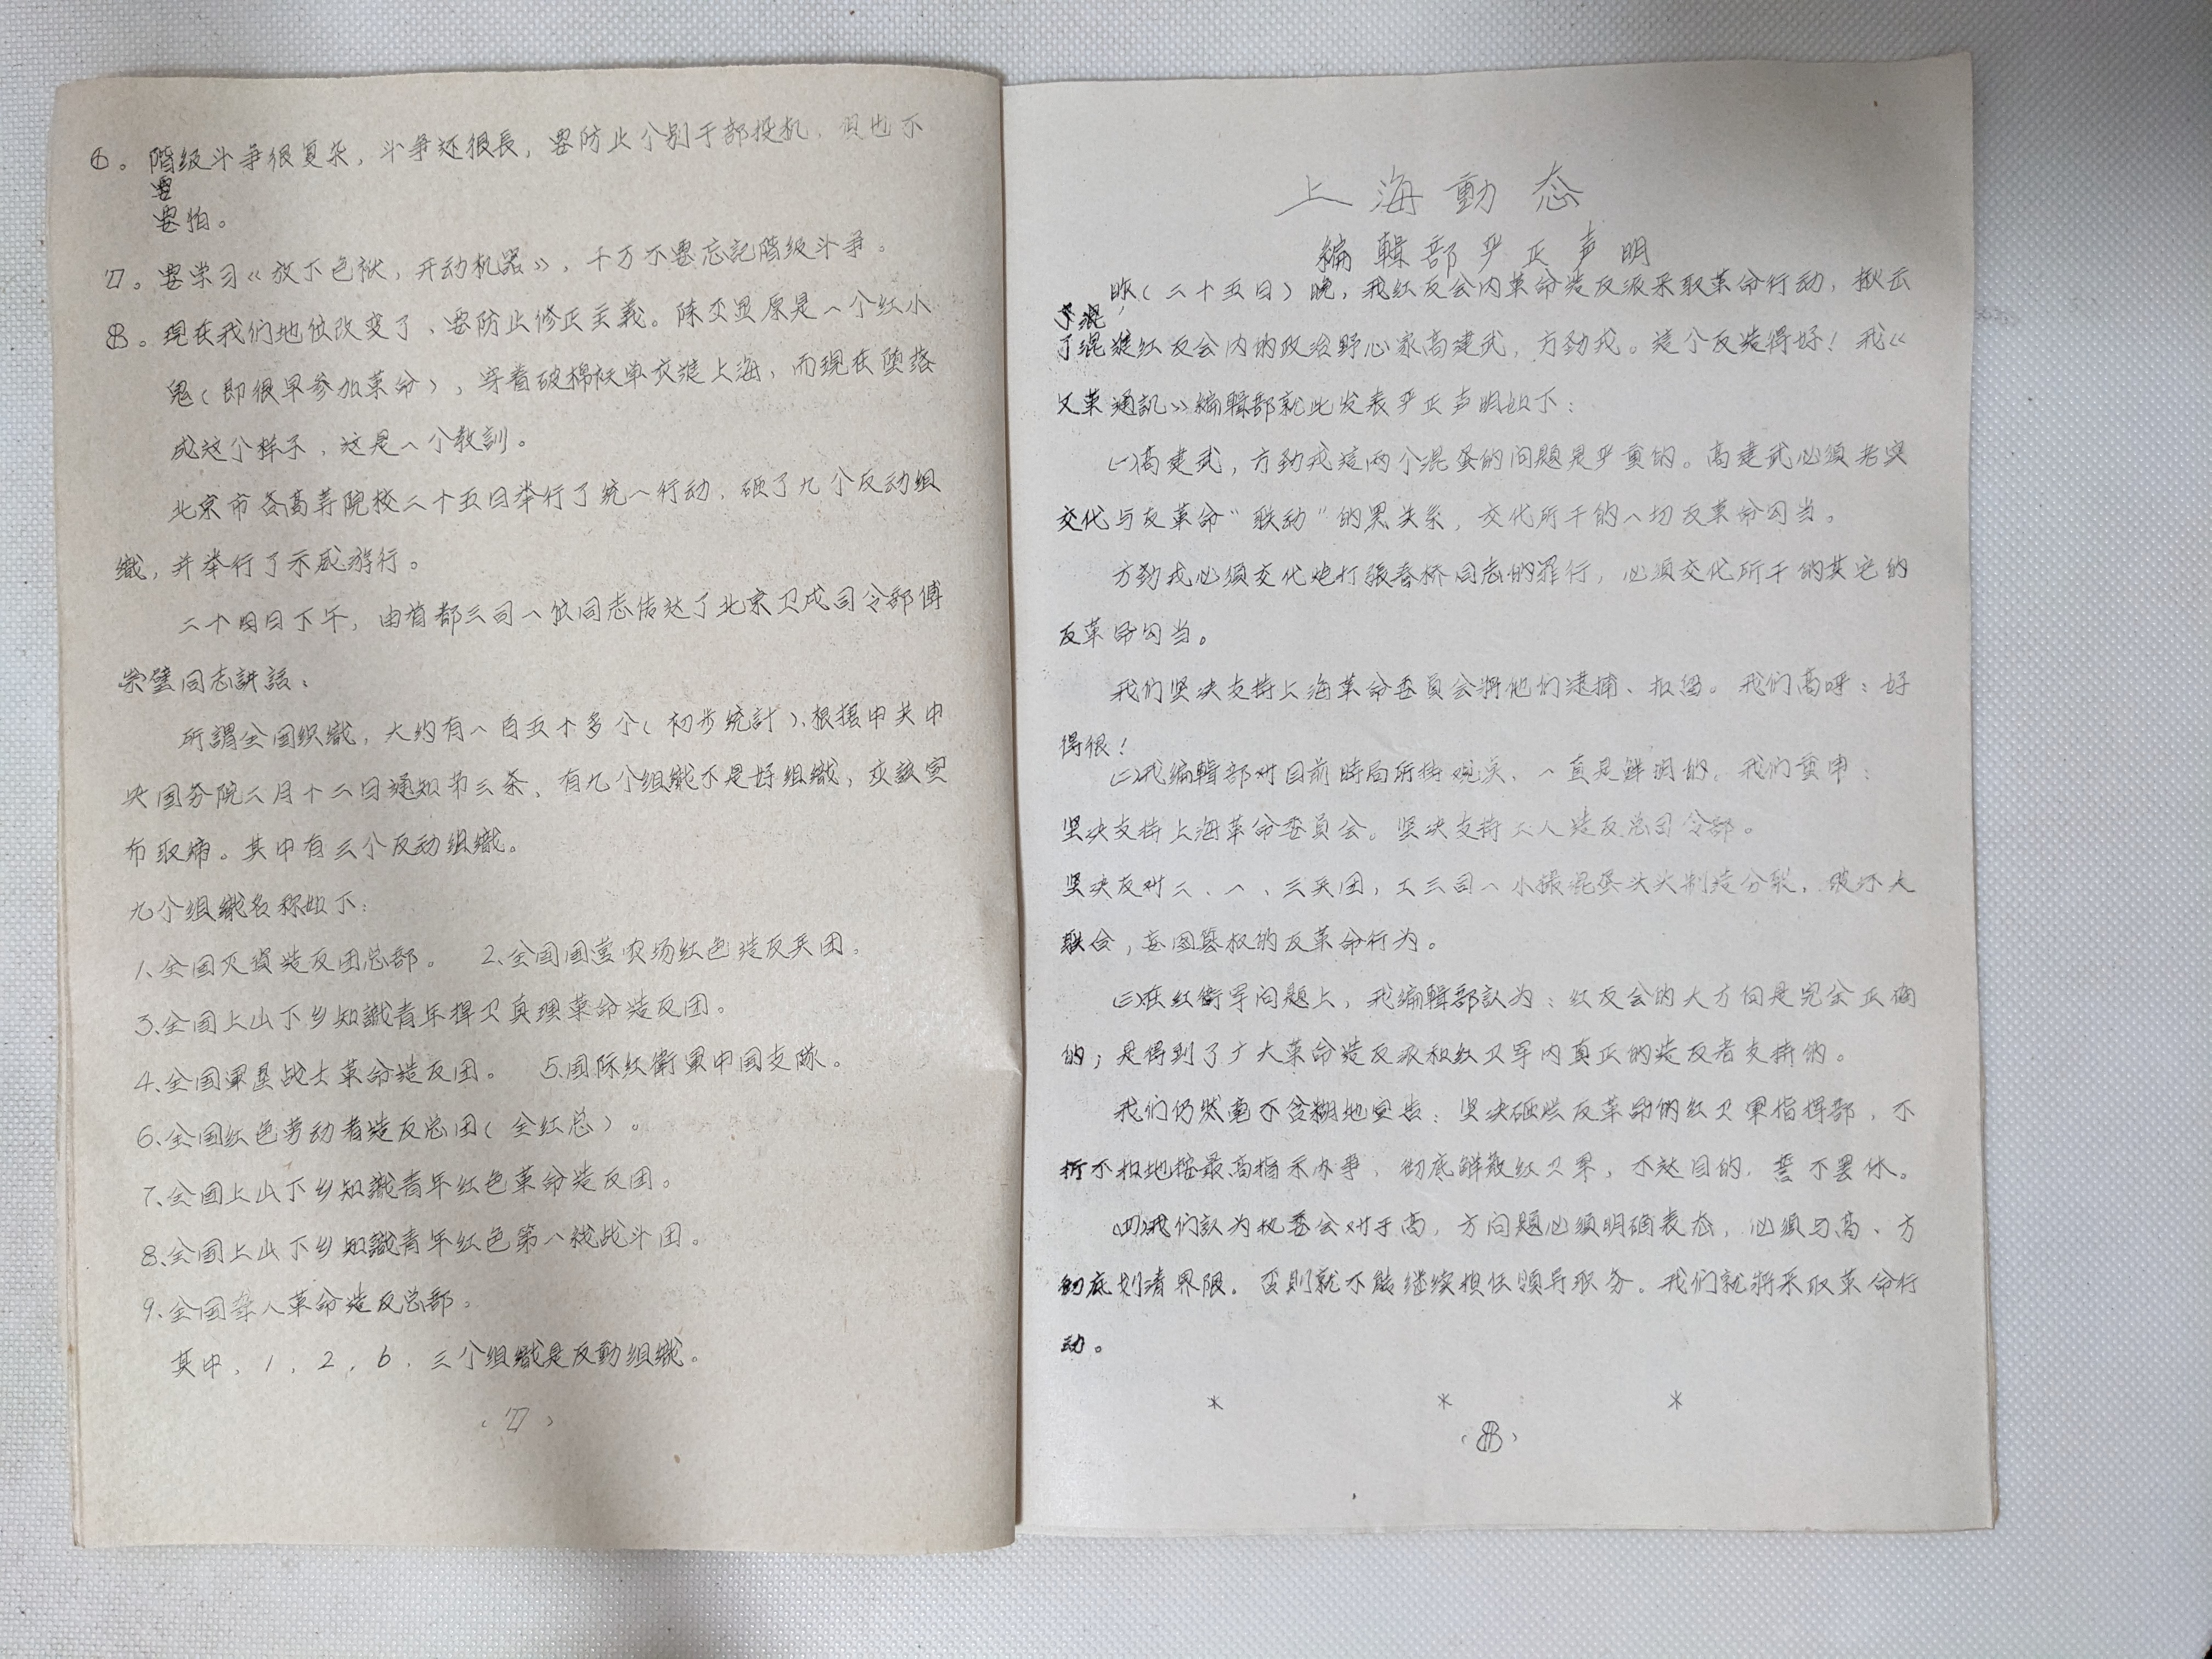 6。階级斗争很复杂，斗争还很長，要防止个别干部投机，但也不
要
要怕。
7。要学习《放下包袱，开动机器》，千万不要忘記階级斗争。
8。现在我们地位改变了，要防止修正主義。陈丕显原是一个红小
鬼（即很早参加革命），穿着破棉袄单衣進上海，而现在堕落
成这个样子，这是一个教訓。
北京市各高等院校二十五日举行了统一行动，砸了九个反动组
織，并举行了示威游行。
二十四日下午，由首都三司一位同志传达了北京卫戍司令部傅
崇璧同志講話：
所謂全国组織，大约有一百五十多个（初步统計）、根据中共中
央国务院二月十二日通知第三条，有九个组織不是好组織，应該宣
布取締。其中有三个反动组織。
九个组織名称如下：
1、全国灭資造反团总部。　2、全国国营农场红色造反兵团。
3、全国上山下乡知識青年捍卫真理革命造反团。
4、全国軍垦战士革命造反团。　5、国际红衛軍中国支隊。
6、全国红色劳动者造反总团（全红总）。
7、全国上山下乡知識青年红色革命造反团。
8、全国上山下乡知識青年红色第一线战斗团。
9、全国聋人革命造反总部。
其中，1，2，6，三个组織是反動组織。
（7）
上海動态
編輯部严正声明
昨（二十五日）晚，我红反会内革命造反派采取革命行动，揪出
了混
了混進红反会内的政治野心家高建武，方劲戎。這个反造得好！我《
文革通訊》編輯部就此发表严正声明如下：
㈠高建武，方劲戎這两个混蛋的问題是严重的。高建武必须老实
交代与反革命“联动”的黑关系，交代所干的一切反革命勾当。
方劲戎必须交代炮打張春桥同志的罪行，必须交代所干的其它的
反革命勾当。
我们坚决支持上海革命委員会将他们逮捕、扣留。我们高呼：好
得很！
㈡我編輯部对目前時局所持观点，一直是鲜明的。我们重申：
坚决支持上海革命委員会。坚决支持工人造反总司令部。
坚决反对二、一、三兵团，工三司一小撮混蛋头头制造分裂，破坏大
联合，妄图篡权的反革命行为。
㈢在红衛军问題上，我編輯部認为：红反会的大方向是完全正确
的；是得到了广大革命造反派和红卫军内真正的造反者支持的。
我们仍然毫不含糊地宣告：坚决砸烂反革命的红卫軍指揮部，不
折不扣地按最高指示办事，彻底解散红卫軍，不达目的，誓不罢休。
㈣我们認为机委会对于高，方问題必须明确表态，必须与高、方
彻底划清界限。否则就不能继续担任領导职务。我们就将采取革命行
动。
*　*　*
（8）